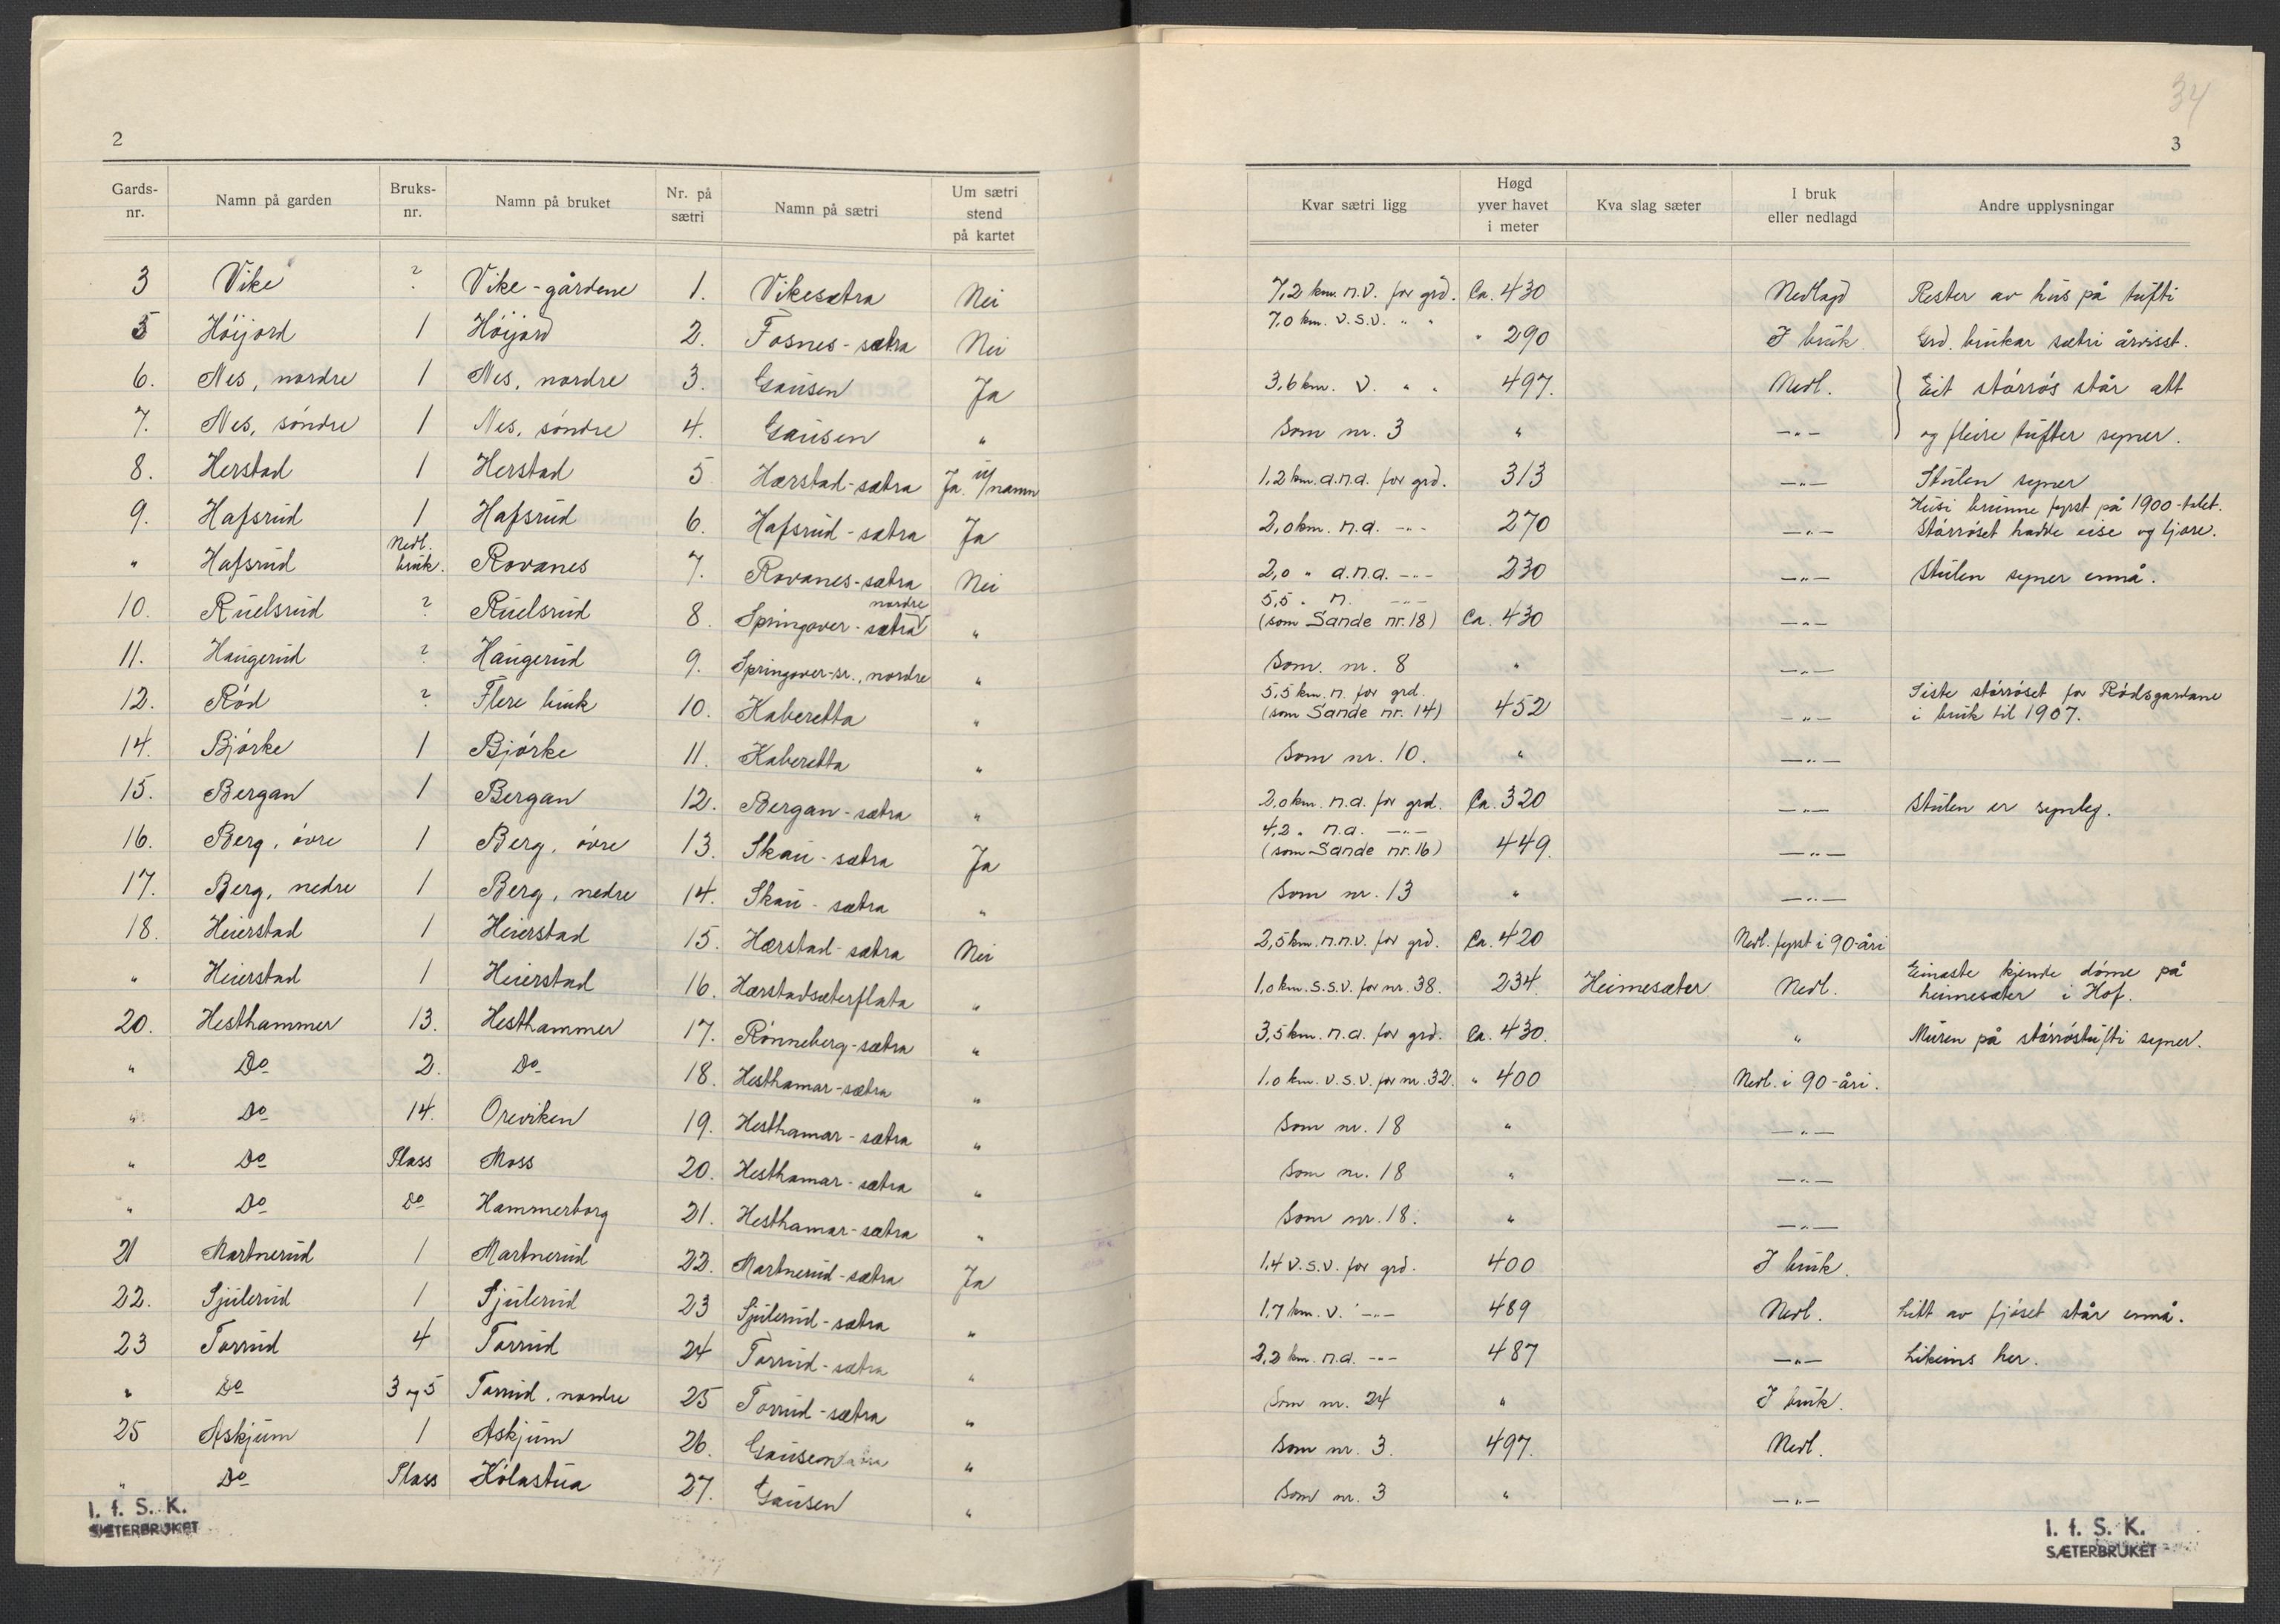 34
2
3
Gards-nr. | Namn på garden | Bruks-nr. | Namn på bruket | Nr. på sætri | Namn på sætri | Um sætri stend på kartet | Kvar sætri ligg | Høgd yver havet i meter | Kva slag sæter | I bruk eller nedlagd | Andre upplysningar
3 | Vike | ? | Vike-gårdene | 1. | Vikesætra | Nei | 7,2 km. n.v. for grd. | Ca. 430 | | Nedlagd | Rester av hus på tufti
5 | Höijord | 1 | Höijord | 2. | Fosnes-sætra | Nei | 7,0 km. v.s.v. " " | " 290 | | I bruk | Grd. brukar sætri årvisst.
6. | Nes, nordre | 1 | Nes, nordre | 3. | Gausen | Ja | 3,6 km. v. " " | 497. | | Nedl. | Eit störrös står att
7. | Nes, söndre | 1 | Nes, söndre | 4. | Gausen | " | Som nr. 3 | " | | —"— | og fleire tufter syner.
8. | Herstad | 1 | Herstad | 5 | Hærstad-sætra | Ja u/namn | 1,2 km. a.n.a. for grd. | 313 | | —"— | Stulen syner
9. | Hafsrud | 1 | Hafsrud | 6. | Hafsrud-sætra | Ja | 2,0 km. n.a. —"— | 270 | | —"— | Husi brunne fyrst på 1900-talet. Störröset hadde eise og ljore.
" | Hafsrud | Nedl. bruk. | Rovanes | 7. | Rovanes-sætra | Nei | 2,0 " a.n.a. —"— | 230 | | —"— | Stulen syner ennå.
10. | Ruelsrud | ? | Ruelsrud | 8. | Springover-sætra nordre | " | 5,5 " n. —"— (som Sande nr. 18) | Ca. 430 | | —"— |
11. | Haugerud | ? | Haugerud | 9. | Springover-sr., nordre | " | Som. nr. 8 | " | | —"— |
12. | Röd | ? | Flere bruk | 10. | Kaberetta | " | 5,5 km. n. for grd. (som Sande nr. 14) | 452 | | —"— | Siste störröset for Rödsgardane i bruk til 1907.
14. | Björke | 1 | Björke | 11. | Kaberetta | " | Som nr. 10. | " | | —"— |
15. | Bergan | 1 | Bergan | 12. | Bergan-sætra | " | 2,0 km. n.a. for grd. | Ca. 320 | | —"— | Stulen er synleg.
16. | Berg, övre | 1 | Berg, övre | 13. | Skau-sætra | Ja | 4,2 " n.a. —"— (som Sande nr. 16) | 449. | | —"— |
17. | Berg, nedre | 1 | Berg, nedre | 14. | Skau-sætra | " | Som nr. 13 | " | | —"— |
18. | Heierstad | 1 | Heierstad | 15. | Hærstad-sætra | Nei | 2,5 km. n.n.v. for grd. | Ca. 420 | | Nedl. fyrst i 90-åri |
" | Heierstad | 1 | Heierstad | 16. | Hærstadsæterflata | " | 1,0 km. s.s.v. for nr. 38. | 234. | Heimesæter | Nedl. | Einaste kjende döme på heimesæter i Hof.
20. | Hesthammer | 13. | Hesthammer | 17. | Rönneberg-sætra | " | 3,5 km. n.a. for grd. | Ca. 430. | | " | Muren på störröstufti syner.
" | Do | 2. | Do | 18. | Hesthamar-sætra | " | 1,0 km. v.s.v. for nr. 32. | " 400 | | Nedl. i 90-åri. |
" | Do | 14. | Oreviken | 19. | Hesthamar-sætra | " | Som nr. 18 | " | | —"— |
" | Do | Plass | Moss | 20. | Hesthamar-sætra | " | Som nr. 18 | " | | —"— |
" | Do | Do | Hammerborg | 21. | Hesthamar-sætra | " | Som nr. 18. | " | | —"— |
21 | Martnerud | 1 | Martnerud | 22. | Martnerud-sætra | Ja | 1,4 v.s.v. for grd. | 400 | | I bruk. |
22. | Sjulerud | 1 | Sjulerud | 23 | Sjulerud-sætra | " | 1,7 km. v. —"— | 489 | | Nedl. | Litt av fjöset står ennå.
23 | Torrud | 4 | Torrud | 24 | Torrud-sætra | " | 2,2 km. n.a. —"— | 487 | | —"— | Likeins her.
" | Do | 3 og 5 | Torrud, nordre | 25 | Torrud-sætra | " | Som nr. 24 | " | | I bruk. |
25 | Askjum | 1 | Askjum | 26. | Gausen | " | Som nr. 3. | 497. | | Nedl. |
" | Do | Plass | Kölastua | 27. | Gausen | " | Som nr. 3 | " | | —"— |
I. f. S. K.
SÆTERBRUKET
I. f. S. K.
SÆTERBRUKET